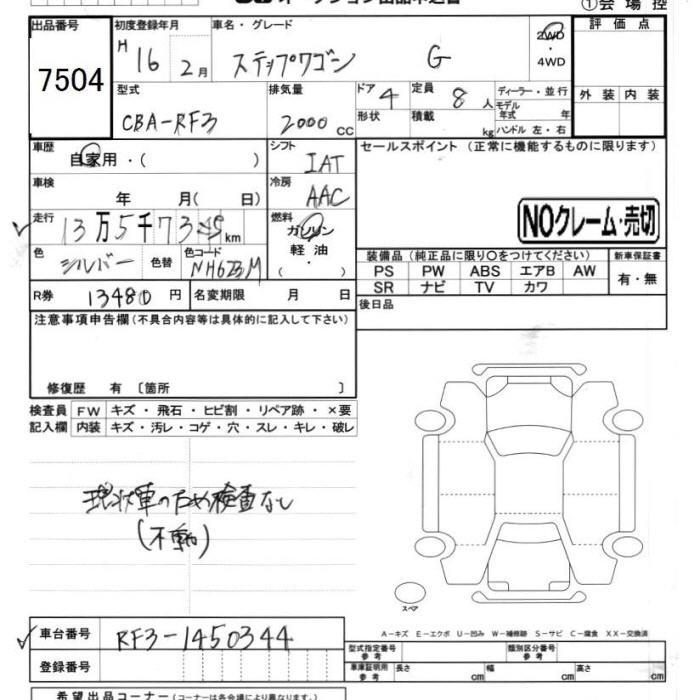 ①会場控
出品番号 初度登録年月 車名・グレード 2WD ・ 4WD 評価点
7504 H 16 2月 ステップワゴン G
型式 排気量 ドア 定員 ディーラー・並行 外装 内装
CBA-RF3 2000 CC 4 8 人 モデル年式 年
形状 積載 kg ハンドル 左・右
車歴 シフト セールスポイント (正常に機能するものに限ります)
自家用・( ) IAT
車検 冷房
年 月( 日) AAC
走行 燃料 NOクレーム・売切
13万5千73 km ガソリン
色 色替 色コード 軽油・
シルバー NH623M ( )
装備品 (純正品に限り○をつけてください) 新車保証書
PS PW ABS エアB AW 有・無
SR ナビ TV カワ
R券 円 名変期限 月 日 後日品
注意事項申告欄 (不具合内容等は具体的に記入して下さい)
修復歴 有 [箇所 ]
検査員 FW キズ・飛石・ヒビ割・リペア跡・×要
記入欄 内装 キズ・汚レ・コゲ・穴・スレ・キレ・破レ
現状車のため検査なし
(不動)
スペア
A-キズ E-エクボ U-凹み W-補修跡 S-サビ C-腐食 XX-交換済
車台番号 RF3-1450344 型式指定番号 参考 類別区分番号 参考
登録番号 車庫証明用 参考 長さ cm 幅 cm 高さ cm
希望出品コーナー (コーナーは各会場により異なります。)